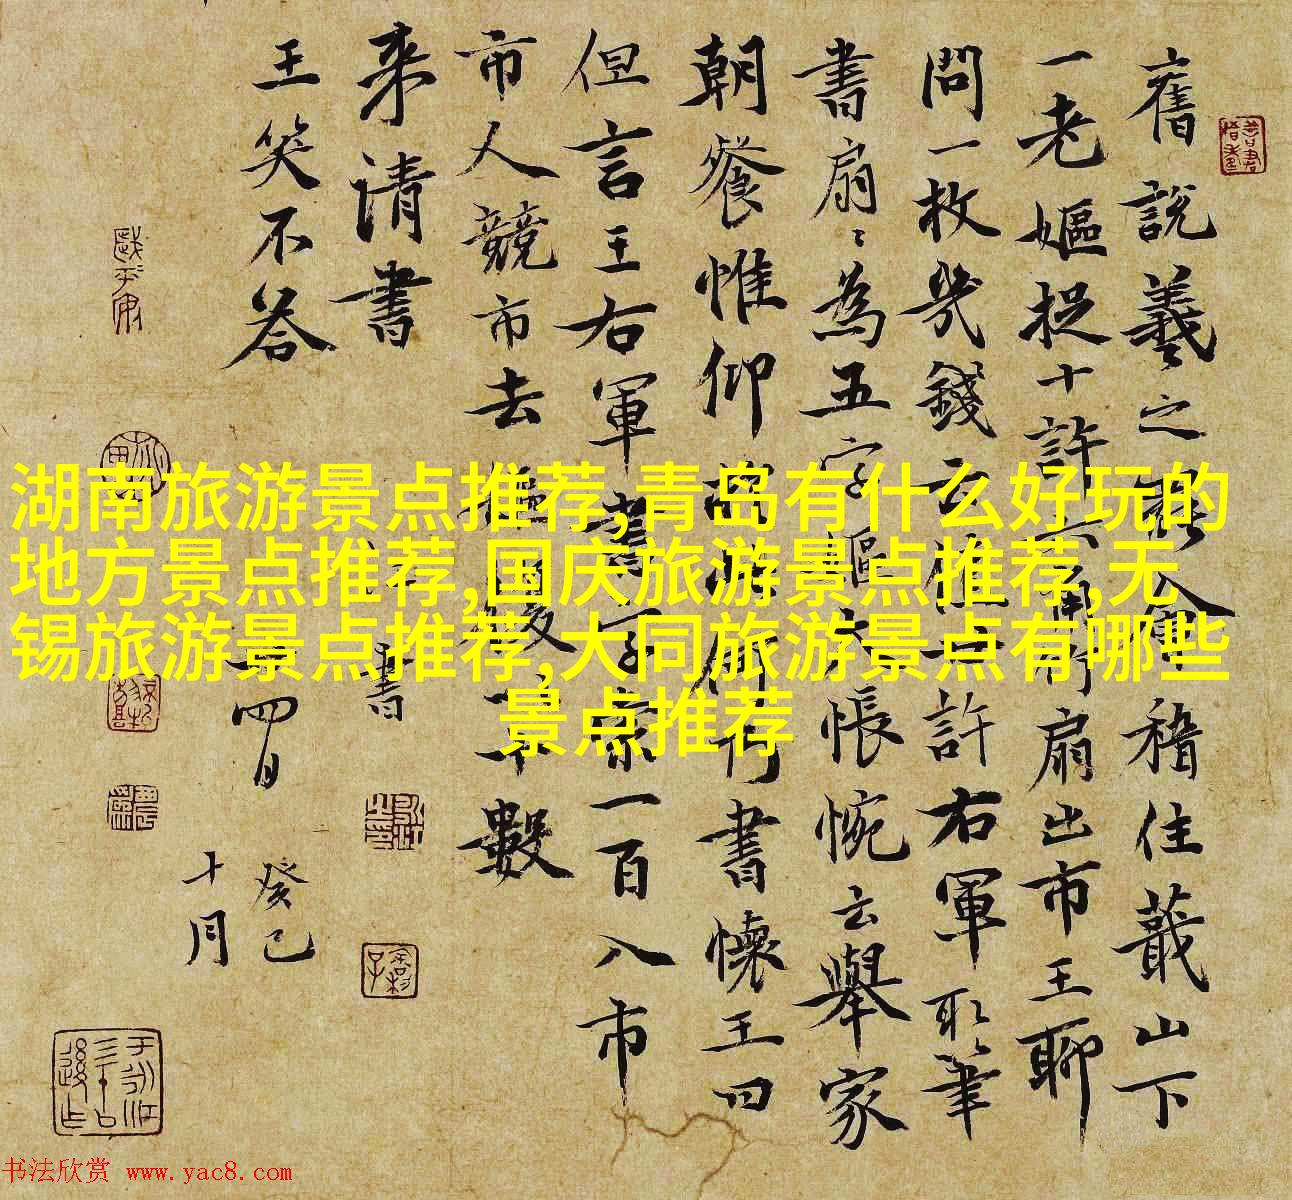 舊說羲之罷會稽住蕺山下
一老嫗捉十許六角扇出市王聊
問一枚幾錢云值二十許右軍取筆
書扇扇為五字嫗大悵惋云舉家
朝餐惟仰
書懷王曰
但言王右軍書字索一百入市
市人競市去
數
来請書
王笑不答
書
四日
癸巳
十月
湖南旅游景点推荐,青岛有什么好玩的
地方景点推荐,国庆旅游景点推荐,无
锡旅游景点推荐,大同旅游景点有哪些
景点推荐
书法欣赏 www.yac8.com